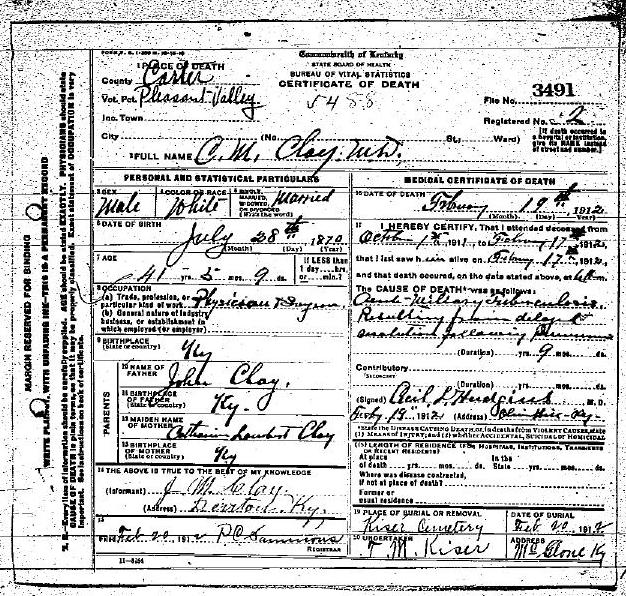 Commonwealth of Kentucky
STATE BOARD OF HEALTH
BUREAU OF VITAL STATISTICS
CERTIFICATE OF DEATH
1 PLACE OF DEATH
County Carter
Vot. Pct. Pleasant Valley
Inc. Town
City (No. St.; Ward)
5488
File No. 3491
Registered No. 2
[If death occurred in a hospital or institution, give its NAME instead of street and number.]
2 FULL NAME C. M. Clay. M.D.
PERSONAL AND STATISTICAL PARTICULARS
3 SEX Male
4 COLOR OR RACE White
5 SINGLE, MARRIED, WIDOWED, OR DIVORCED (Write the word) Married
6 DATE OF BIRTH July 28th 1870
(Month) (Day) (Year)
7 AGE 41 yrs. 5 mos. 9 ds.
If LESS than 1 day, hrs. or min.?
8 OCCUPATION
(a) Trade, profession, or particular kind of work Physician & Surgeon
(b) General nature of industry business, or establishment in which employed (or employer)
9 BIRTHPLACE (State or country) Ky
PARENTS
10 NAME OF FATHER John Clay.
11 BIRTHPLACE OF FATHER (State or country) Ky.
12 MAIDEN NAME OF MOTHER Clay
13 BIRTHPLACE OF MOTHER (State or country) Ky
14 THE ABOVE IS TRUE TO THE BEST OF MY KNOWLEDGE
(Informant) J M Clay
(Address) Ky.
15
Filed Feb 20, 1912 P C
REGISTRAR
MEDICAL CERTIFICATE OF DEATH
16 DATE OF DEATH 19th, 1912
(Month) (Day) (Year)
17 I HEREBY CERTIFY, That I attended deceased from
1911, to 17th 1912,
that I last saw him alive on 17th 1912,
and that death occured, on the date stated above, at m.
The CAUSE OF DEATH was as follows:
Acute Miliary Tuberculosis
Resulting from delayed
resolution following
(Duration) yrs. 9 mos. ds.
Contributory
SECONDARY
(Duration) yrs. mos. ds.
(Signed) M. D.
19 1912 (Address) Olive Hill Ky.
*State the DISEASE CAUSING DEATH, or, in deaths from VIOLENT CAUSES, state (1) MEANS OF INJURY; and (2) whether ACCIDENTAL, SUICIDAL or HOMICIDAL
18 LENGTH OF RESIDENCE (FOR HOSPITALS, INSTITUTIONS, TRANSIENTS OR RECENT RESIDENTS)
At place of death yrs. mos. ds. In the State yrs. mos. ds.
Where was disease contracted, if not at place of death?
Former or usual residence
19 PLACE OF BURIAL OR REMOVAL Kiser Cemetery
DATE OF BURIAL Feb 20, 1912
20 UNDERTAKER F. M. Kiser
ADDRESS McGlone Ky
11-3184
MARGIN RESERVED FOR BINDING
WRITE PLAINLY, WITH UNFADING INK—THIS IS A PERMANENT RECORD
N. B.—Every item of information should be carefully supplied. AGE should be stated EXACTLY. PHYSICIANS should state CAUSE OF DEATH in plain terms, so that it may be properly classified. Exact statement of OCCUPATION is very important. See instructions on back of certificate.